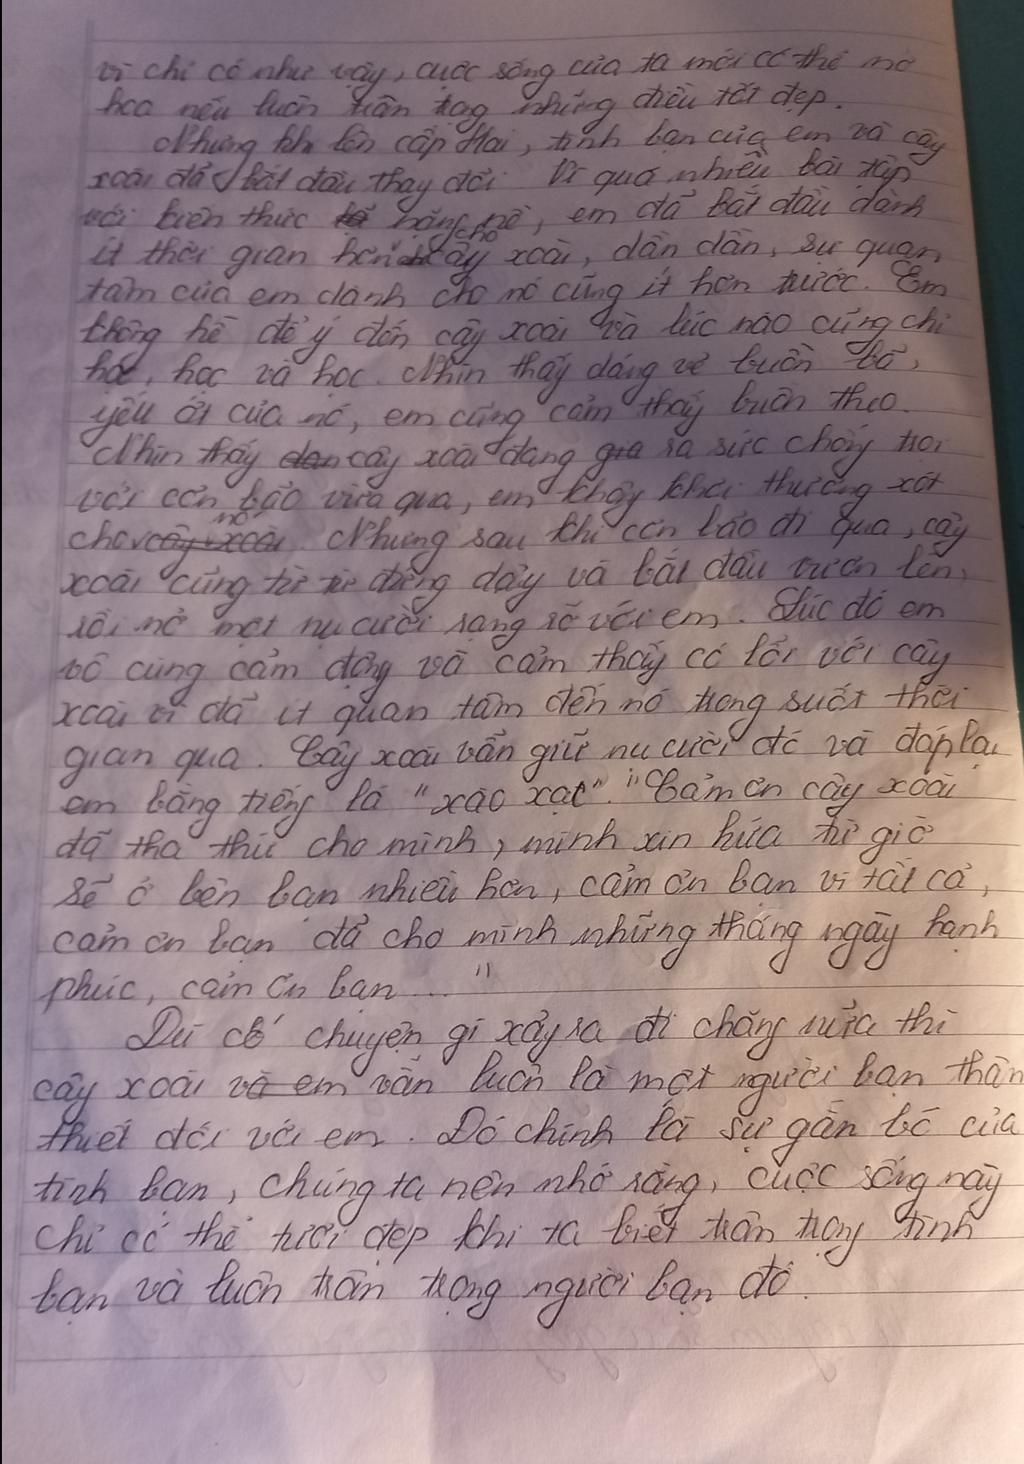 vì chỉ có như vậy, cuộc sống của ta mới có thể nở
hoa nếu luôn trân trọng những điều tốt đẹp.
Nhưng khi lên cấp Hai, tình bạn của em và cây
xoài đã bắt đầu thay đổi. Vì quá nhiều bài tập
với kiến thức nặng nề, em đã bắt đầu dành
ít thời gian hơn cho cây xoài, dần dần, sự quan
tâm của em dành cho nó cũng ít hơn trước. Em
không hề để ý đến cây xoài và lúc nào cũng chỉ
học, học và học. Nhìn thấy dáng vẻ buồn bã,
yếu ớt của nó, em cũng cảm thấy buồn theo.
Nhìn thấy cây xoài đang ra sức chống trọi
với cơn bão vừa qua, em thấy thương xót
cho nó. Nhưng sau khi cơn bão đi qua, cây
xoài cũng từ từ đứng dậy và bắt đầu vươn lên,
rồi nở một nụ cười rạng rỡ với em. Lúc đó em
vô cùng cảm động và cảm thấy có lỗi với cây
xoài vì đã ít quan tâm đến nó trong suốt thời
gian qua. Cây xoài vẫn giữ nụ cười đó và đáp lại
em bằng tiếng lá "xào xạc". "Cảm ơn cây xoài
đã tha thứ cho mình, mình xin hứa từ giờ
sẽ ở bên bạn nhiều hơn, cảm ơn bạn vì tất cả,
cảm ơn bạn đã cho mình những tháng ngày hạnh
phúc, cảm ơn bạn ... "
Dù có chuyện gì xảy ra đi chăng nữa thì
cây xoài vẫn luôn là một người bạn thân
thiết đối với em. Đó chính là sự gắn bó của
tình bạn, chúng ta nên nhớ rằng, cuộc sống này
chỉ có thể tươi đẹp khi ta biết trân trọng tình
bạn và luôn trân trọng người bạn đó.